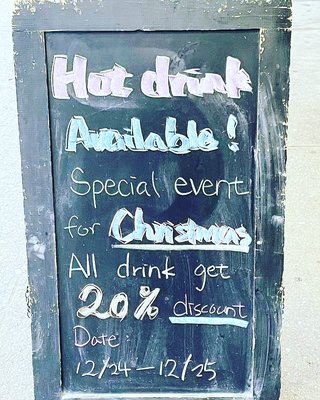 Hot drink
Available!
Special event
for Christmas
All drink get
20% discount
Date:
12/24-12/25